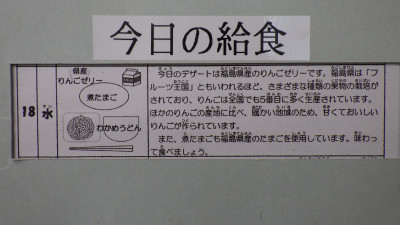 今日の給食
18
水
県産
りんごゼリー
煮たまご
わかめうどん
今日のデザートは福島県産のりんごゼリーです。福島県は「フ
ルーツ王国」ともいわれるほど、さまざまな種類の果物の栽培が
されており、りんごは全国でも5番目に多く生産されています。
ほかのりんごの産地に比べ、暖かい地域のため、甘くておいしい
りんごが作られています。
また、煮たまごも福島県産のたまごを使用しています。味わっ
て食べましょう。